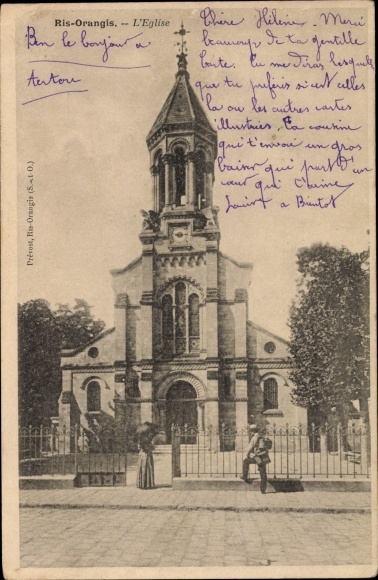 Ris-Orangis. — L'Eglise
Ben le bonjour a
Chère Hélène. Merci
beaucoup de ta gentille
carte. tu me diras lesquels
que tu préfères si c'est celles
la ou les autres cartes
illustrées. Ta cousine
qui t'envoi un gros
baiser qui part d'un
cœur qui t'aime
a Bientot
Prévost, Ris-Orangis (S.-et-O.)